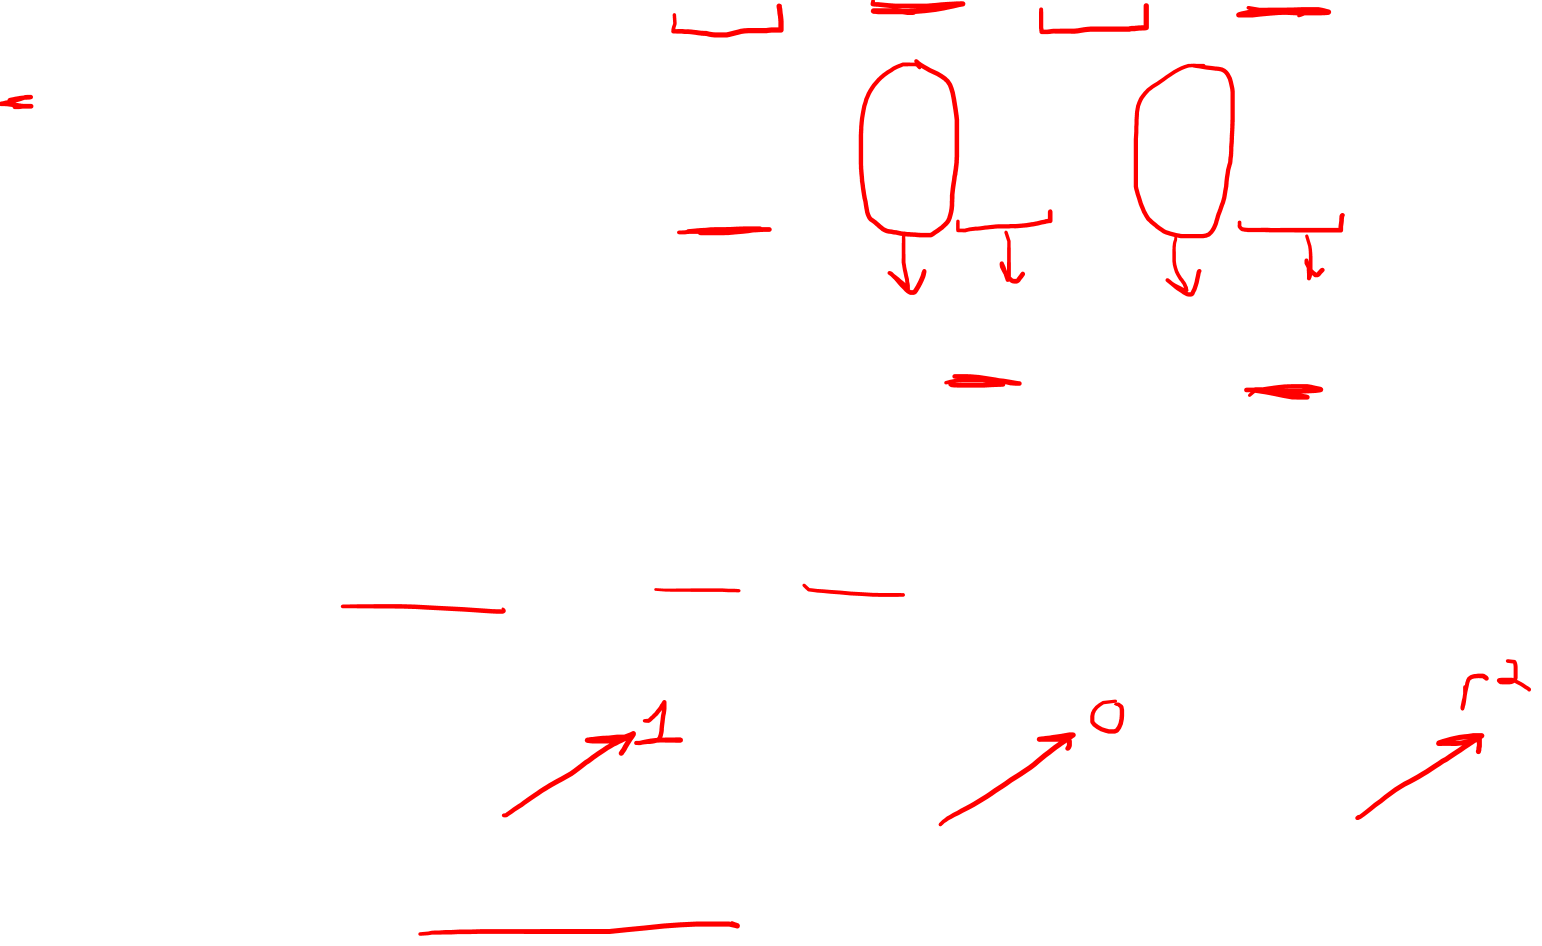 1 0 r²